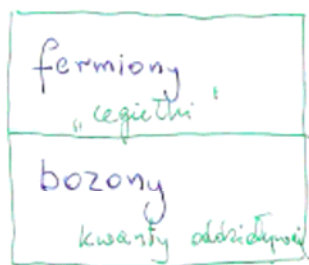 fermiony
„cegiełki"
bozony
kwanty oddziaływań